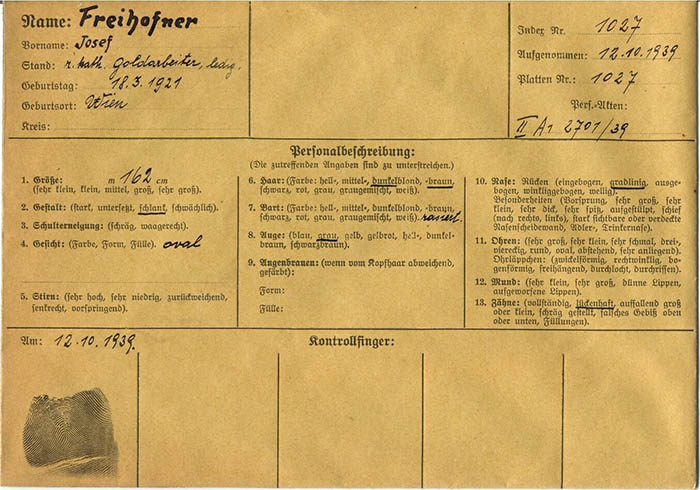 Name: Freihofner
Vorname: Josef
Stand: r. kath. Goldarbeiter, ledig.
Geburtstag: 18.3.1921
Geburtsort: Wien
Kreis:
Index Nr. 1027
Aufgenommen: 12.10.1939
Platten Nr.: 1027
Pers.-Akten:
II A1 2701/39
Personalbeschreibung:
(Die zutreffenden Angaben sind zu unterstreichen.)
1. Größe: m 162 cm
(sehr klein, klein, mittel, groß, sehr groß).
2. Gestalt: (stark, untersetzt, schlank, schwächlich).
3. Schulterneigung: (schräg, waagerecht).
4. Gesicht: (Farbe, Form, Fülle). oval
5. Stirn: (sehr hoch, sehr niedrig, zurückweichend,
senkrecht, vorspringend).
6. Haar: (Farbe: hell-, mittel-, dunkelblond, -braun,
schwarz, rot, grau, graugemischt, weiß).
7. Bart: (Farbe: hell-, mittel-, dunkelblond, -braun,
schwarz, rot, grau, graugemischt, weiß). rasiert.
8. Auge: (blau, grau, gelb, gelbrot, hell-, dunkel-
braun, schwarzbraun).
9. Augenbrauen: (wenn vom Kopfhaar abweichend,
gefärbt):
Form:
Fülle:
10. Nase: Rücken (eingebogen, gradlinig, ausge-
bogen, winkliggebogen, wellig).
Besonderheiten (Vorsprung, sehr groß, sehr
klein, sehr dick, sehr spitz, aufgestülpt, schief
(nach rechts, links), stark sichtbare oder verdeckte
Nasenscheidewand, Adler-, Trinkernase).
11. Ohren: (sehr groß, sehr klein, sehr schmal, drei-,
viereckig, rund, oval, abstehend, sehr anliegend).
Ohrläppchen: (zwickelförmig, rechtwinklig, bo-
genförmig, freihängend, durchlocht, durchrissen).
12. Mund: (sehr klein, sehr groß, dünne Lippen,
aufgeworfene Lippen).
13. Zähne: (vollständig, lückenhaft, auffallend groß
oder klein, schräg gestellt, falsches Gebiß oben
oder unten, Füllungen).
Am: 12.10.1939.
Kontrollfinger: